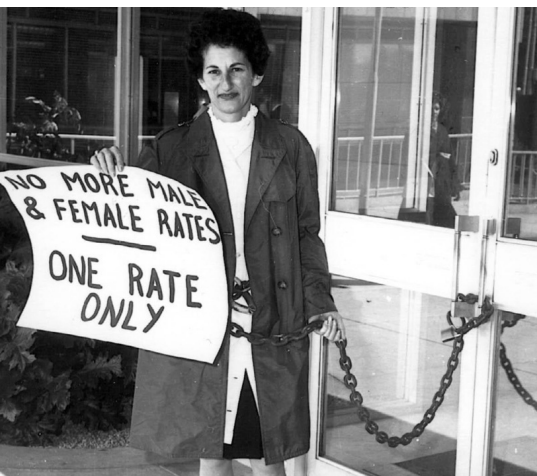 NO MORE MALE
& FEMALE RATES
ONE RATE
ONLY